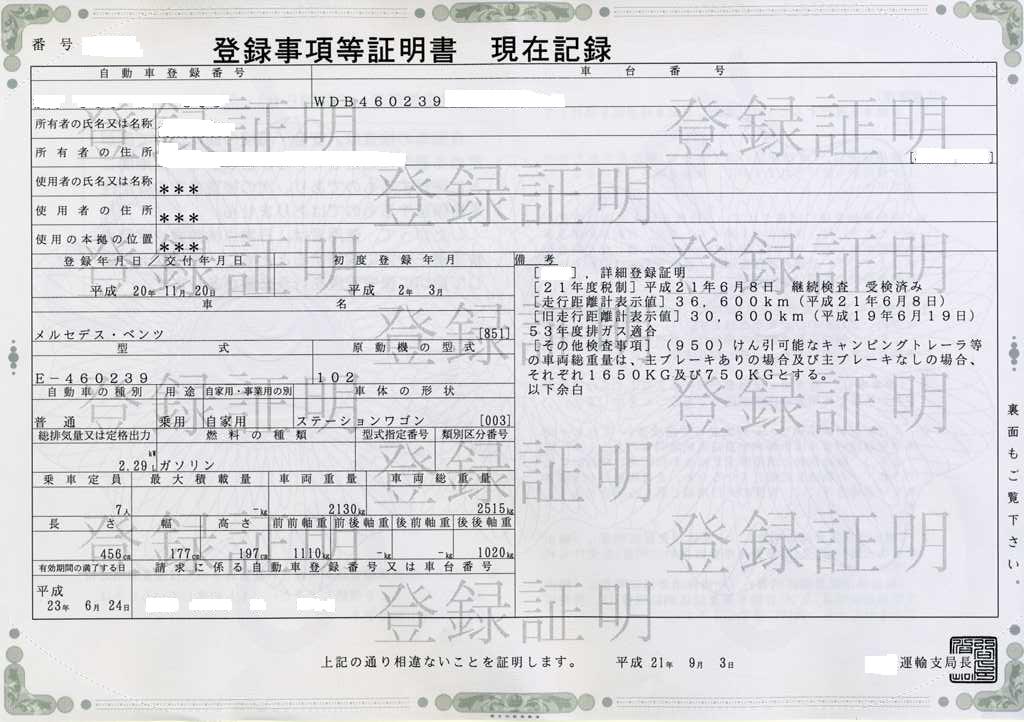 番号
登録事項等証明書 現在記録
自動車登録番号 車台番号
WDB460239
所有者の氏名又は名称
所有者の住所
[ ]
使用者の氏名又は名称 ***
使用者の住所 ***
使用の本拠の位置 ***
登録年月日/交付年月日 初度登録年月
平成 20年 11月 20日 平成 2年 3月
車名
メルセデス・ベンツ [851]
型式 原動機の型式
E-460239 102
自動車の種別 用途 自家用・事業用の別 車体の形状
普通 乗用 自家用 ステーションワゴン [003]
総排気量又は定格出力 燃料の種類 型式指定番号 類別区分番号
kW
2.29 L ガソリン
乗車定員 最大積載量 車両重量 車両総重量
7人 -kg 2130kg 2515kg
長さ 幅 高さ 前前軸重 前後軸重 後前軸重 後後軸重
456cm 177cm 197cm 1110kg -kg -kg 1020kg
有効期間の満了する日 請求に係る自動車登録番号又は車台番号
平成
23年 6月 24日
備考
[ ],詳細登録証明
[21年度税制]平成21年6月8日 継続検査 受検済み
[走行距離計表示値]36,600km(平成21年6月8日)
[旧走行距離計表示値]30,600km(平成19年6月19日)
53年度排ガス適合
[その他検査事項](950)けん引可能なキャンピングトレーラ等
の車両総重量は、主ブレーキありの場合及び主ブレーキなしの場合、
それぞれ1650KG及び750KGとする。
以下余白
裏面もご覧下さい。
上記の通り相違ないことを証明します。 平成 21年 9月 3日 運輸支局長
登録証明
登録証明
登録証明
登録証明
登録証明
登録証明
登録証明
登録証明
登録証明
登録証明
登録証明
登録証明